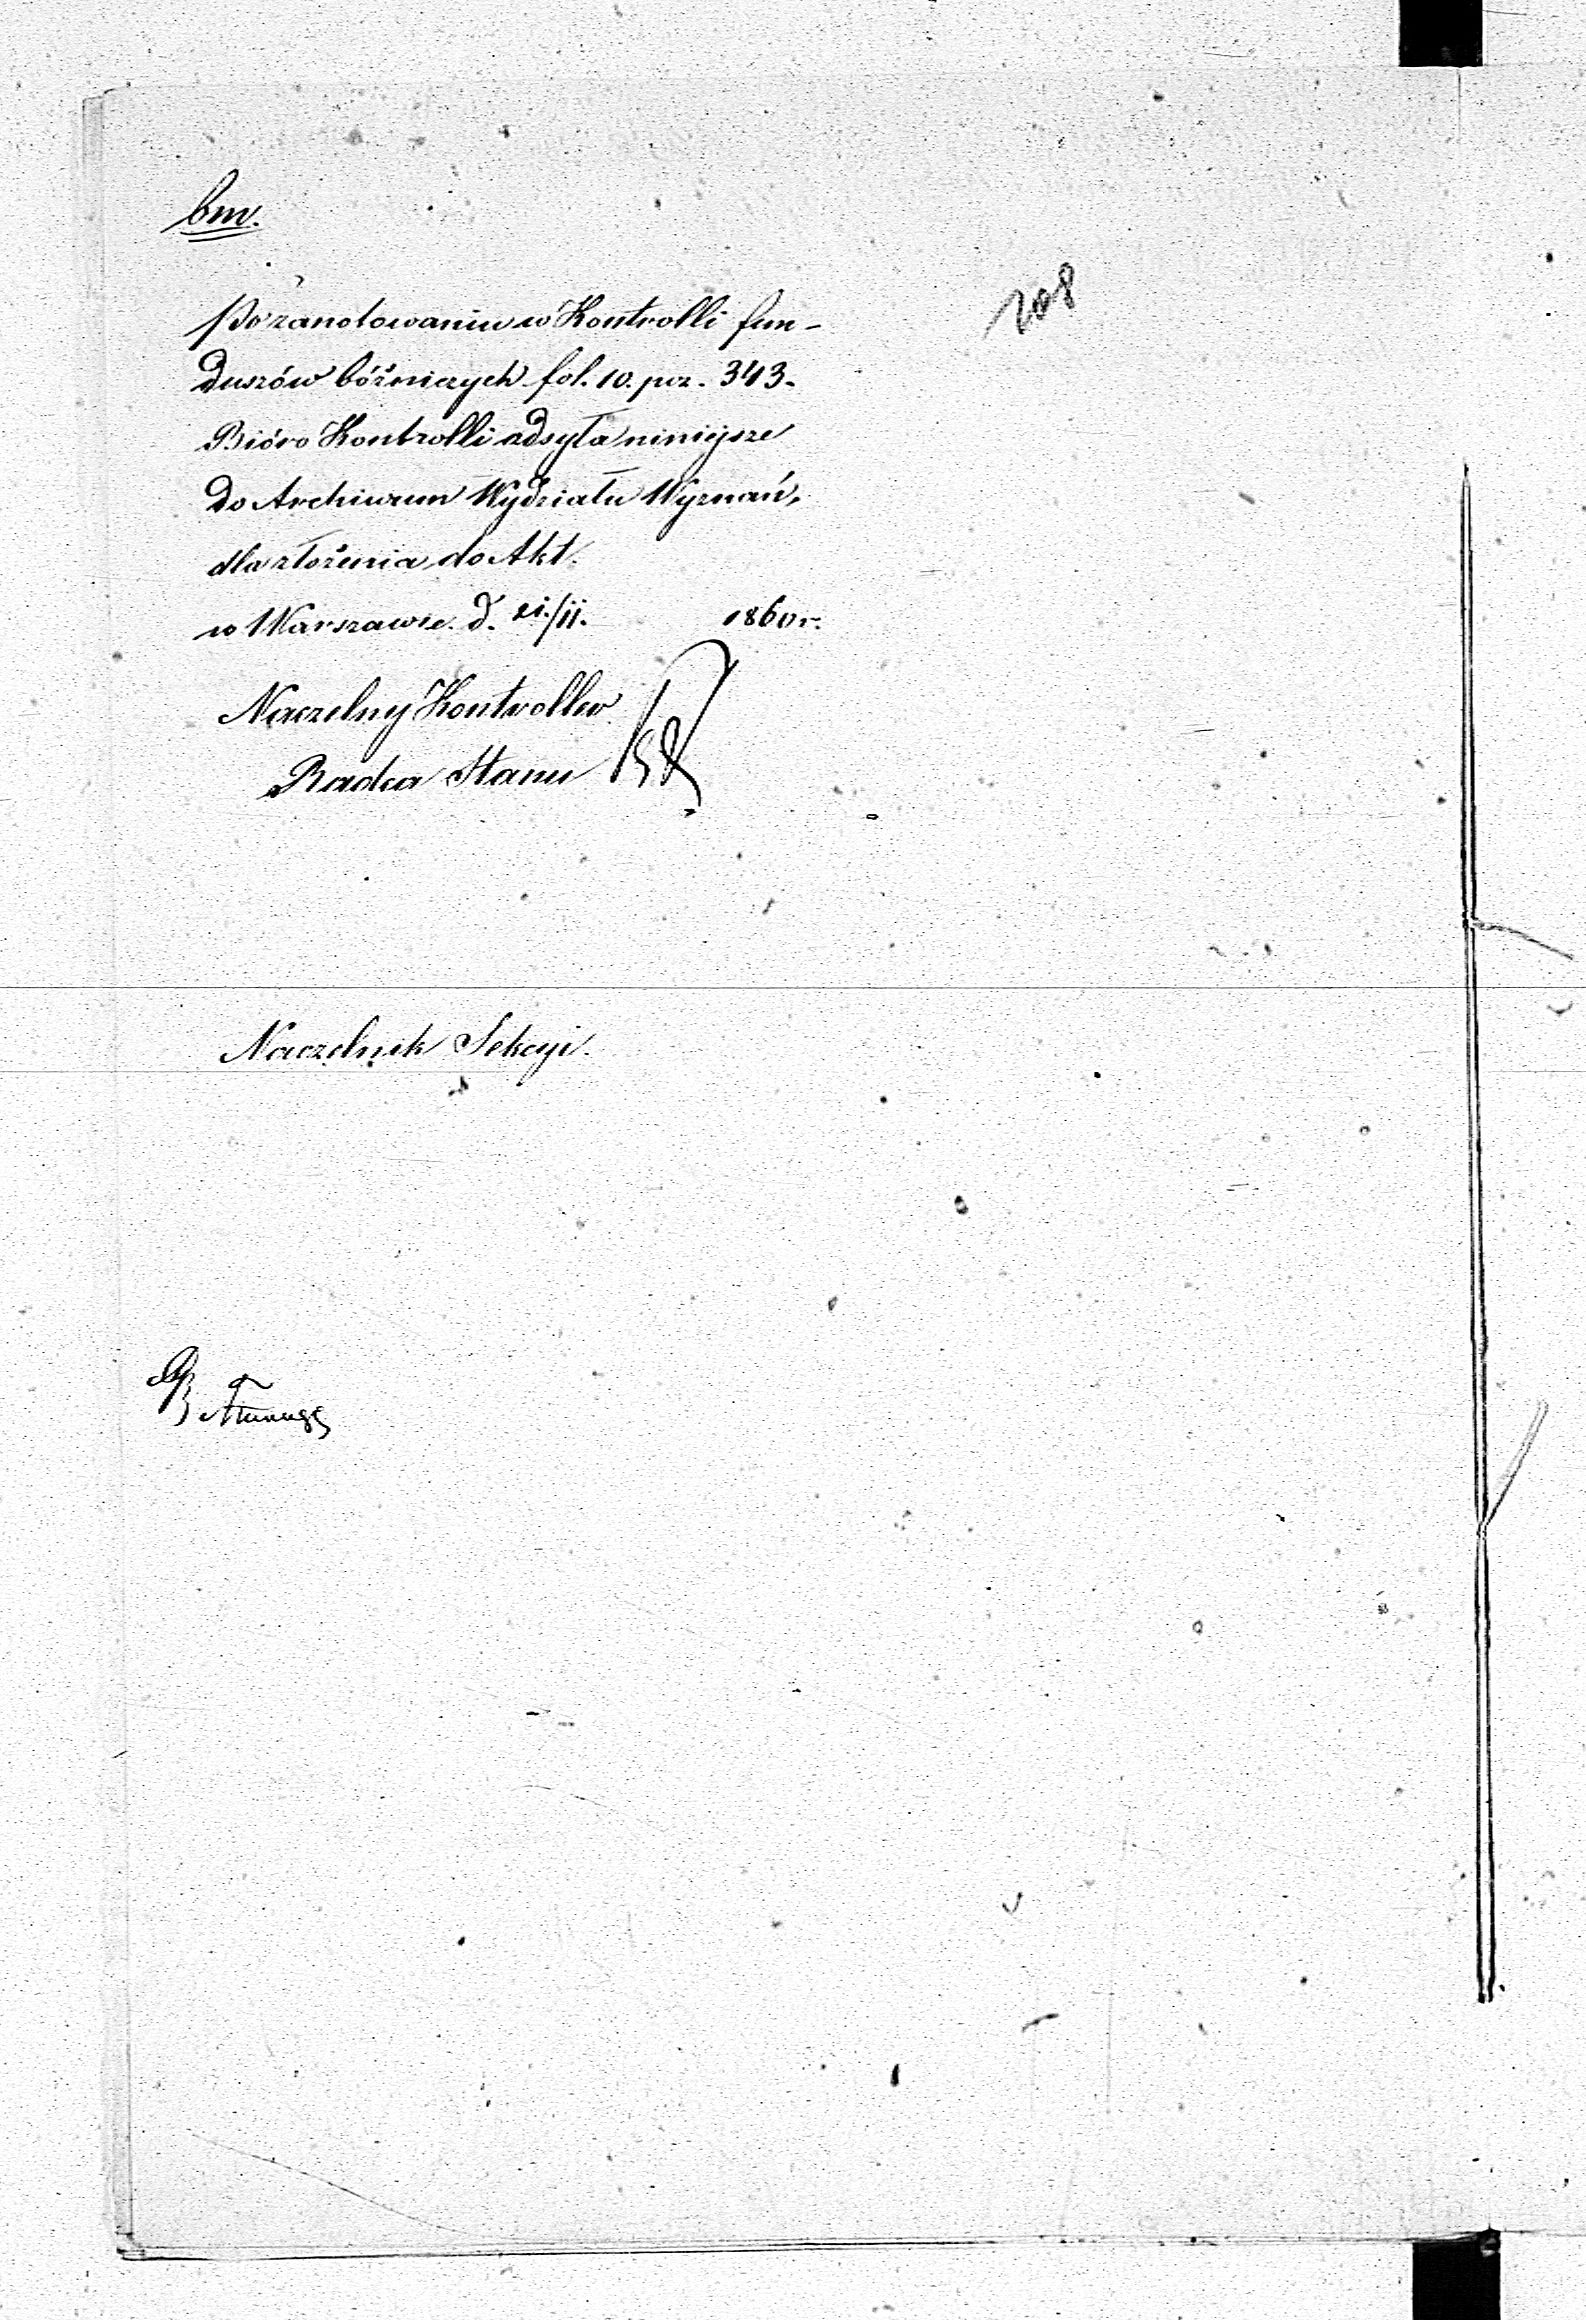 bm.
208
Po zanotowaniu w Kontrolli fun-
duszów bóżniczych fol. 10. poz. 343.
Bióro Kontrolli odsyła niniejsze
do Archiwum Wydziału Wyznań,
dla złożenia do Akt.
w Warszawie. d. 21./11. 1860 r.
Naczelny Kontroller
Radca Stanu
Naczelnik Sekcyi.